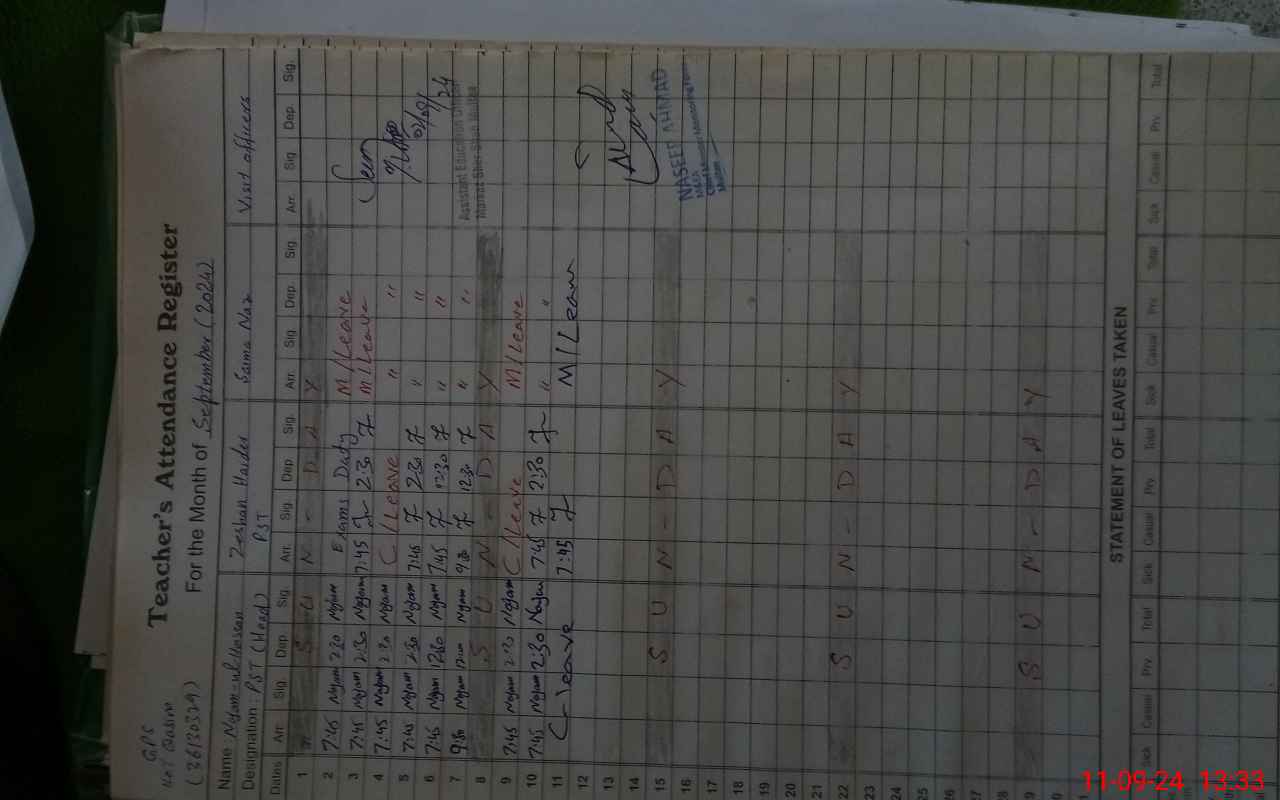 GPS
(36130329)
Teacher's Attendance Register
For the Month of September (2024)
Name Najam-ul-Hassan Zeshan Haider Saima Naz Visit officers
Designation: PST (Head) PST
Dates Arr. Sig. Dep. Sig. Arr. Sig. Dep Sig. Arr. Sig. Dep. Sig. Arr. Sig Dep. Sig.
1 S U N - D A Y
2 7:45 Najam 2:30 Najam Exams Duty M/Leave
3 7:45 Najam 2:30 Najam 7:45 2:30 M/Leave
4 7:45 Najam 2:30 Najam C/Leave " "
5 7:45 Najam 2:30 Najam 7:45 2:30 " "
6 7:45 Najam 12:30 Najam 7:45 12:30 " "
7 9:30 Najam Najam 9:30 12:30 " "
Assistant Education Officer
8 S U N - D A Y
9 7:45 Najam 2:30 Najam C/Leave M/Leave
10 7:45 Najam 2:30 Najam 7:45 2:30 " "
11 C-leave 7:45 M/Leave
12
13
14
15 S U N - D A Y
NASEER AHMAD
16
17
18
19
20
21
22 S U N - D A Y
23
24
25
26
27
28
29 S U N - D A Y
STATEMENT OF LEAVES TAKEN
Sick Casual Prv Total Sick Casual Prv Total Sick Casual Prv Total Sick Casual Prv. Total
11-09-24 13:33